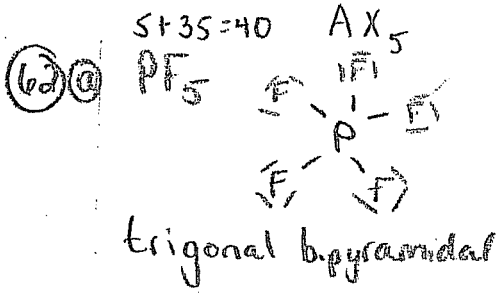 5+35=40 AX5
62 a PF5
F F F
P
F F
trigonal bipyramidal